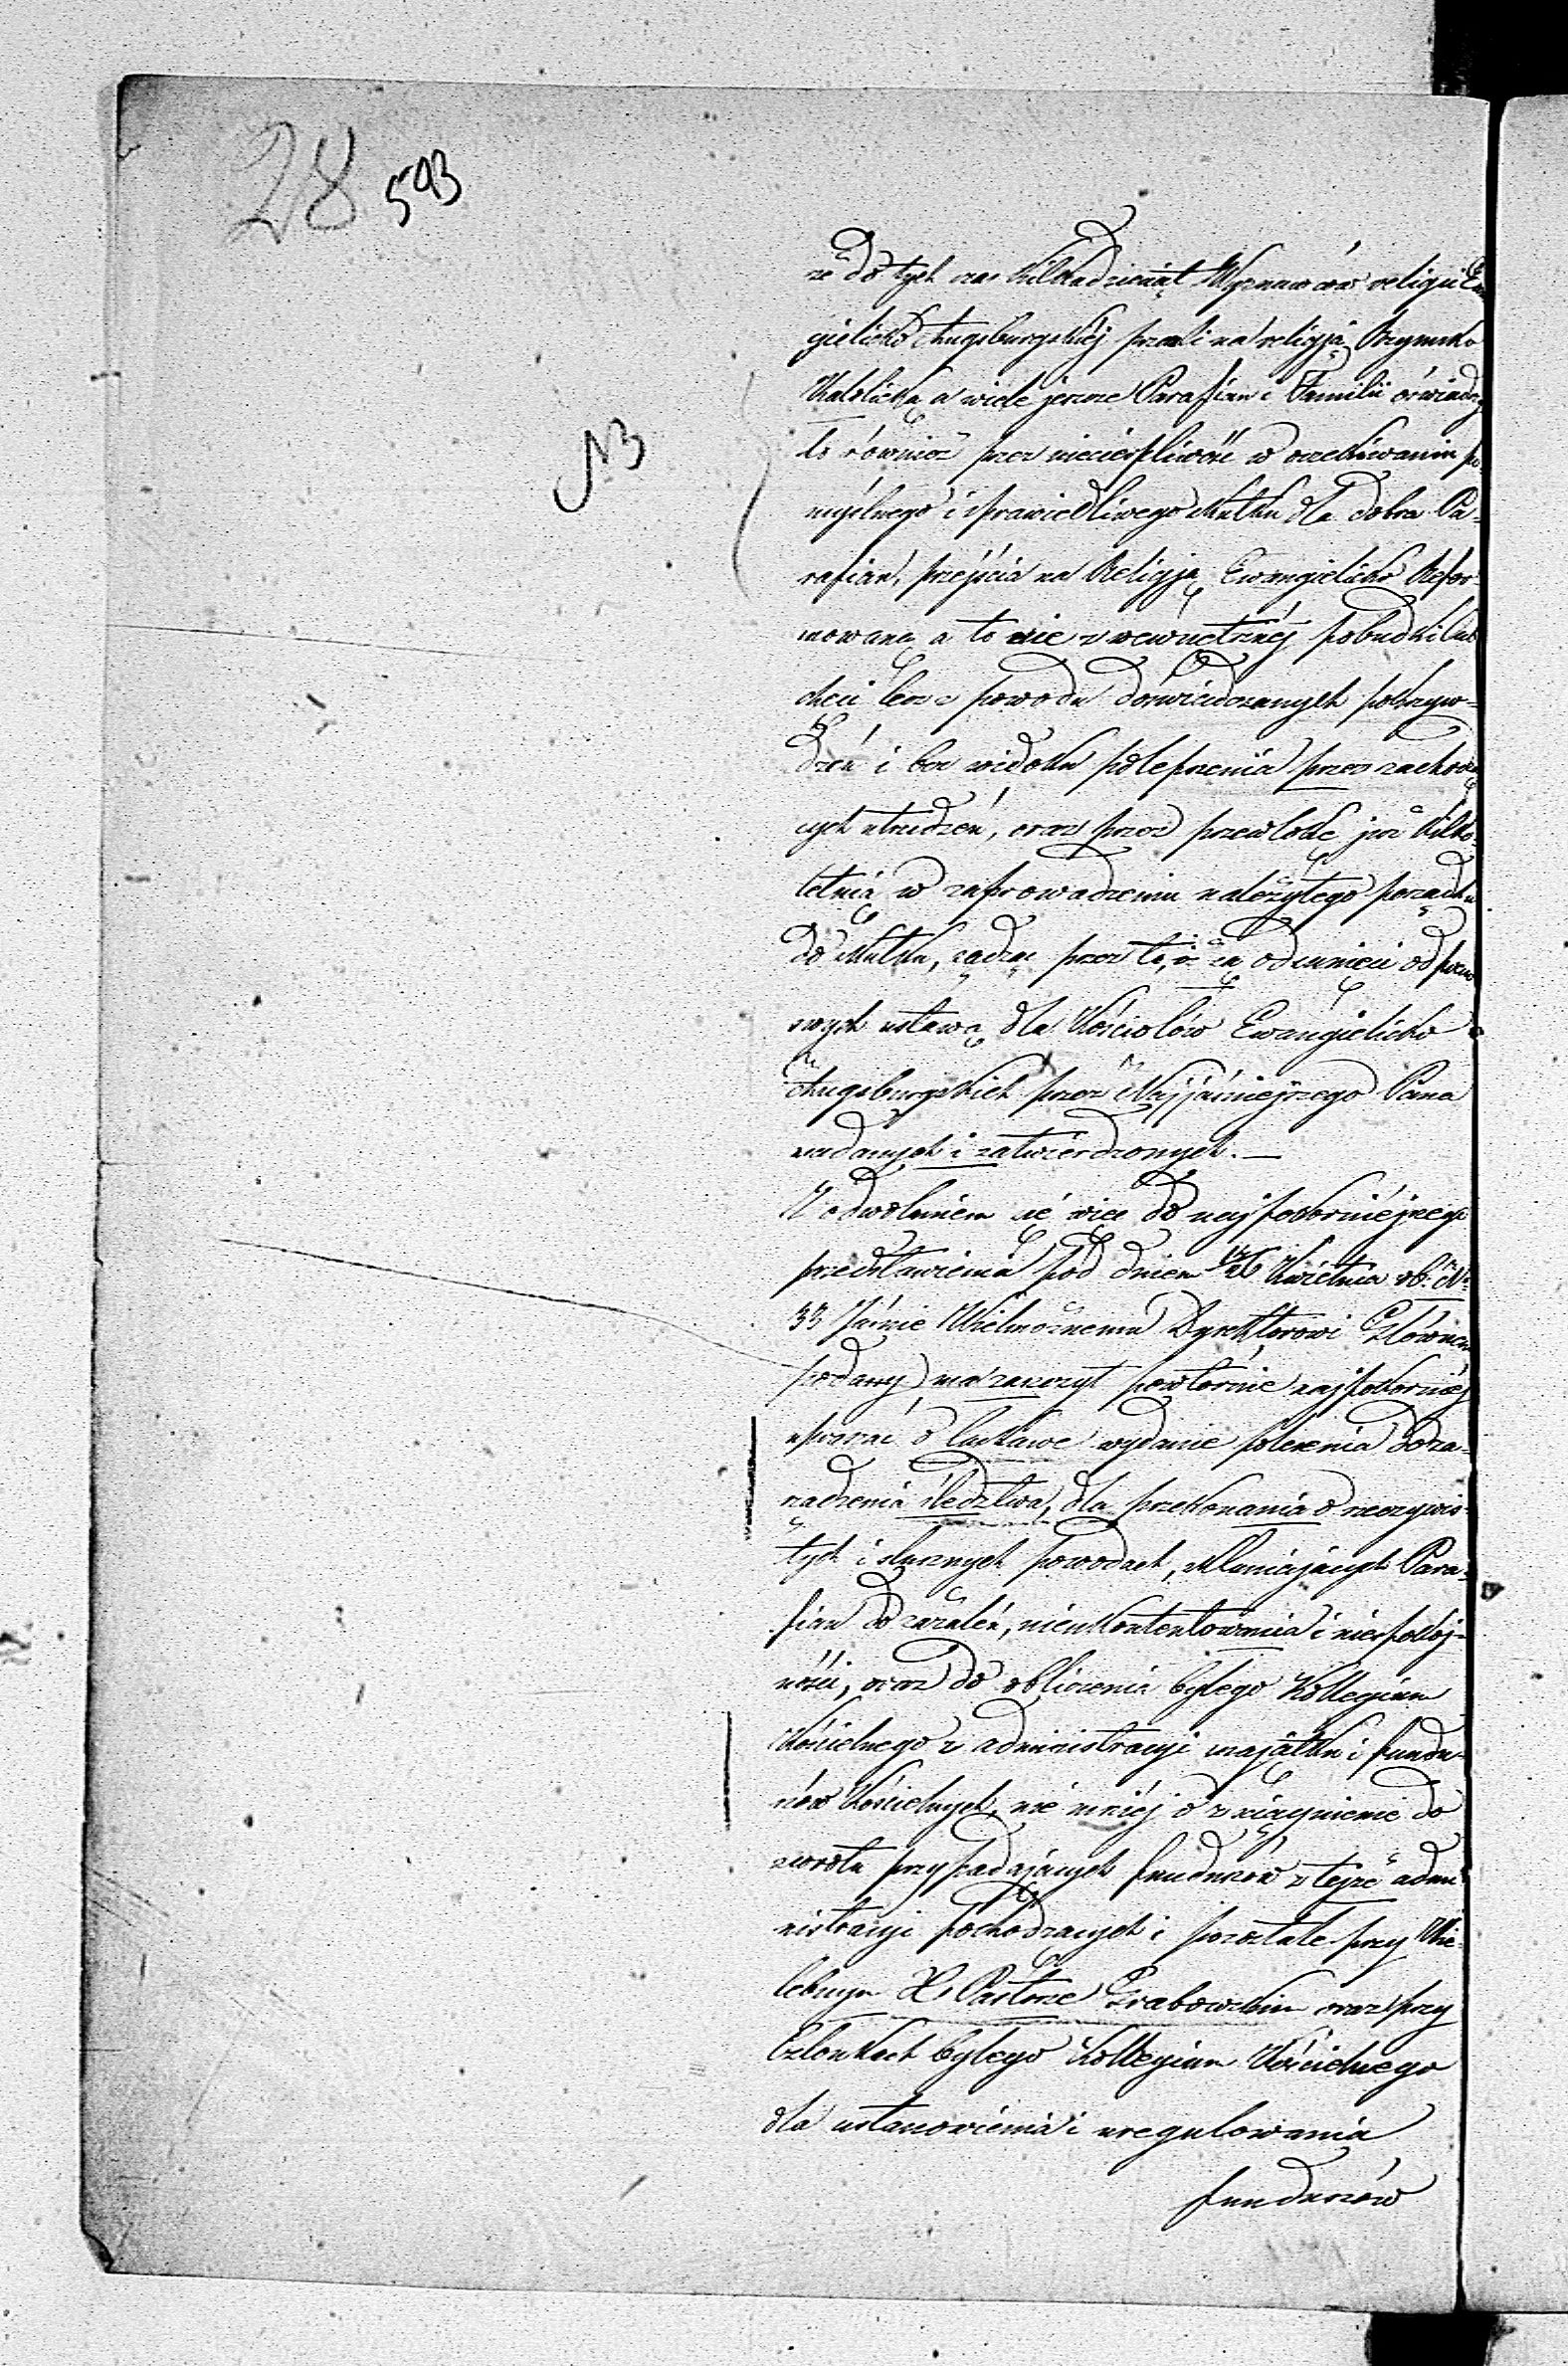 28 593
że do tych czas kilkadziesiąt Wyznawców religii Ewan
gielicko Augsburgskiej przeszli na religją Rzymsko
Katolicką a wiele jeszcze Parafian i Familii oświadczy
NB
to również przez niecierpliwość w oczekiwaniu po
myślnego i sprawiedliwego skutku dla dobra Pa-
rafian, przejścia na Religją Ewangielicko Refor-
mowaną a to nie z wewnętrznéj pobudki lub
chęci lecz z powodu doświadczanych pokrzyw-
dzeń i bez widoku polepszenia przez zachodzą
cych utrudzeń, oraz przez przewlokę już kilko-
letnią w zaprowadzeniu należytego porządku
do skutku, sądząc przez to, iż są odsunięci od praw
swych ustawą dla Kościołów Ewangielicko
Augsburgskich przez Najjaśniejszego Pana
nadanych i zatwierdzonych. —
Z odwołaniem się więc do najpokorniéjszego
przedstawienia pod dniem 14/26 Kwietnia rb: No
33 Jaśnie Wielmożnemu Dyrektorowi Główn
podany, ma zaszczyt powtórnie najpokorniéj
upraszać o łaskawe wydanie polecenia do za-
rządzenia śledztwa, dla przekonania o rzeczywis-
tych i słusznych powodach, skłaniających Para-
fian do zażaleń, nieukontentowania i niespokoj-
ności, oraz do obliczenia byłego Kollegium
Kościelnego z administracyi majątku i fundu-
szów Kościelnych, nie mniéj o ściągnienie do
zwrotu przypadających funduszów z tejże admi
nistracyi pochodzących i pozostałe przy Wie-
lebnym X. Pastorze Grabowskim oraz przy
Członkach byłego Kollegium Kościelnego
dla ustanowienia i uregulowania
funduszów